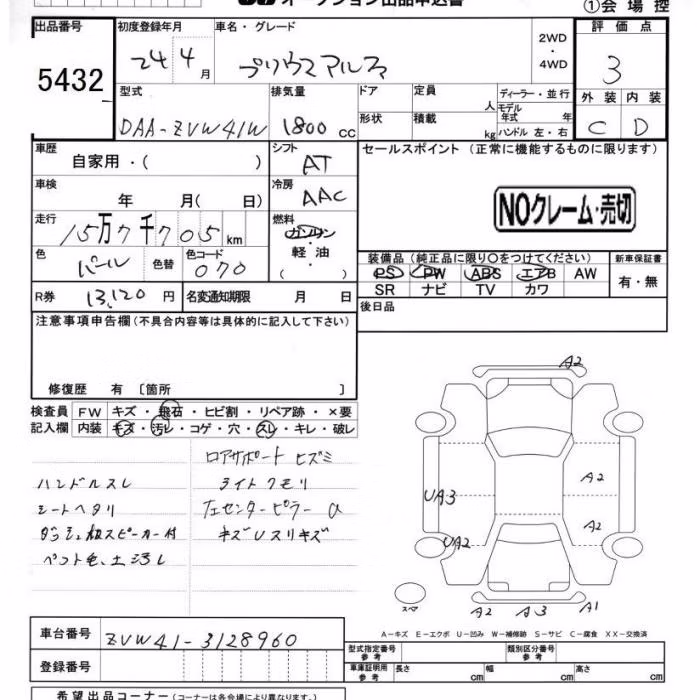 オークション出品申込書
①会場控
出品番号 初度登録年月 車名・グレード 2WD・4WD 評価点
5432 24 4月 プリウスアルファ 3
型式 排気量 ドア 定員 人 ディーラー・並行 外装 内装
モデル年式 年
DAA-ZVW41W 1800cc 形状 積載 kg ハンドル 左・右 C D
車歴 自家用・( ) シフト AT セールスポイント (正常に機能するものに限ります)
車検 年 月( 日) 冷房 AAC
NOクレーム・売切
走行 15万7千705km 燃料 ガソリン 軽油
色 パール 色替 色コード 070 装備品 (純正品に限り〇をつけてください) 新車保証書
PS PW ABS エアB AW 有・無
R券 13,120円 名変通知期限 月 日 SR ナビ TV カワ
注意事項申告欄 (不具合内容等は具体的に記入して下さい) 後日品
修復歴 有 [箇所 ]
検査員 FW キズ・飛石・ヒビ割・リペア跡・×要
記入欄 内装 キズ・汚レ・コゲ・穴・スレ・キレ・破レ
ロアサポート ヒズミ
ハンドルスレ ライトクモリ
シートヘタリ 左センターピラー α
ダッシュ板スピーカー付 キズUスリキズ
ペット毛、土汚レ
A2
UA3
A2
A2
UA2
スペア
A2 A3 A1
A-キズ E-エクボ U-凹み W-補修跡 S-サビ C-腐食 XX-交換済
車台番号 ZVW41-3128960
型式指定番号 参考 類別区分番号 参考
登録番号 車庫証明用 参考 長さ cm 幅 cm 高さ cm
希望出品コーナー (コーナーは各会場により異なります。)